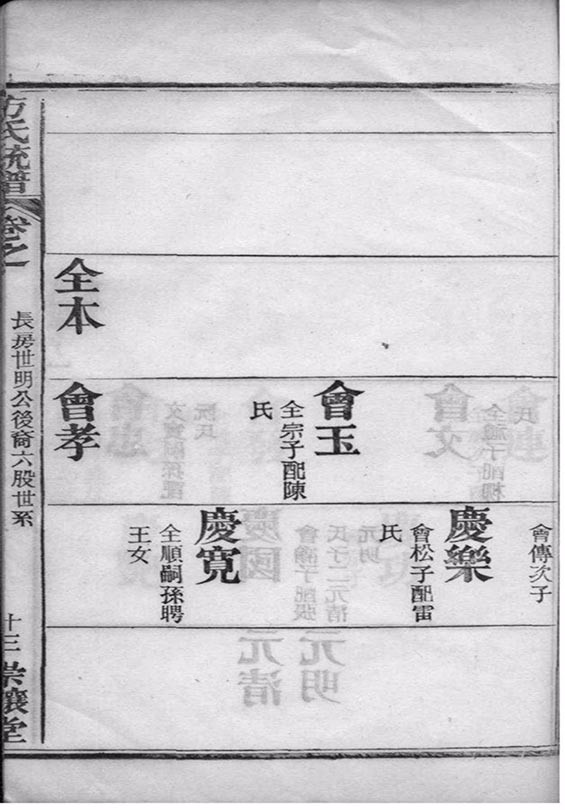 會傳次子
慶樂
會松子配雷
氏
會玉
全宗子配陳
氏
慶寬
全順嗣孫聘
王女
全本
會孝
方氏統譜
卷之一
長房世明公後裔六股世系
十三
崇讓堂